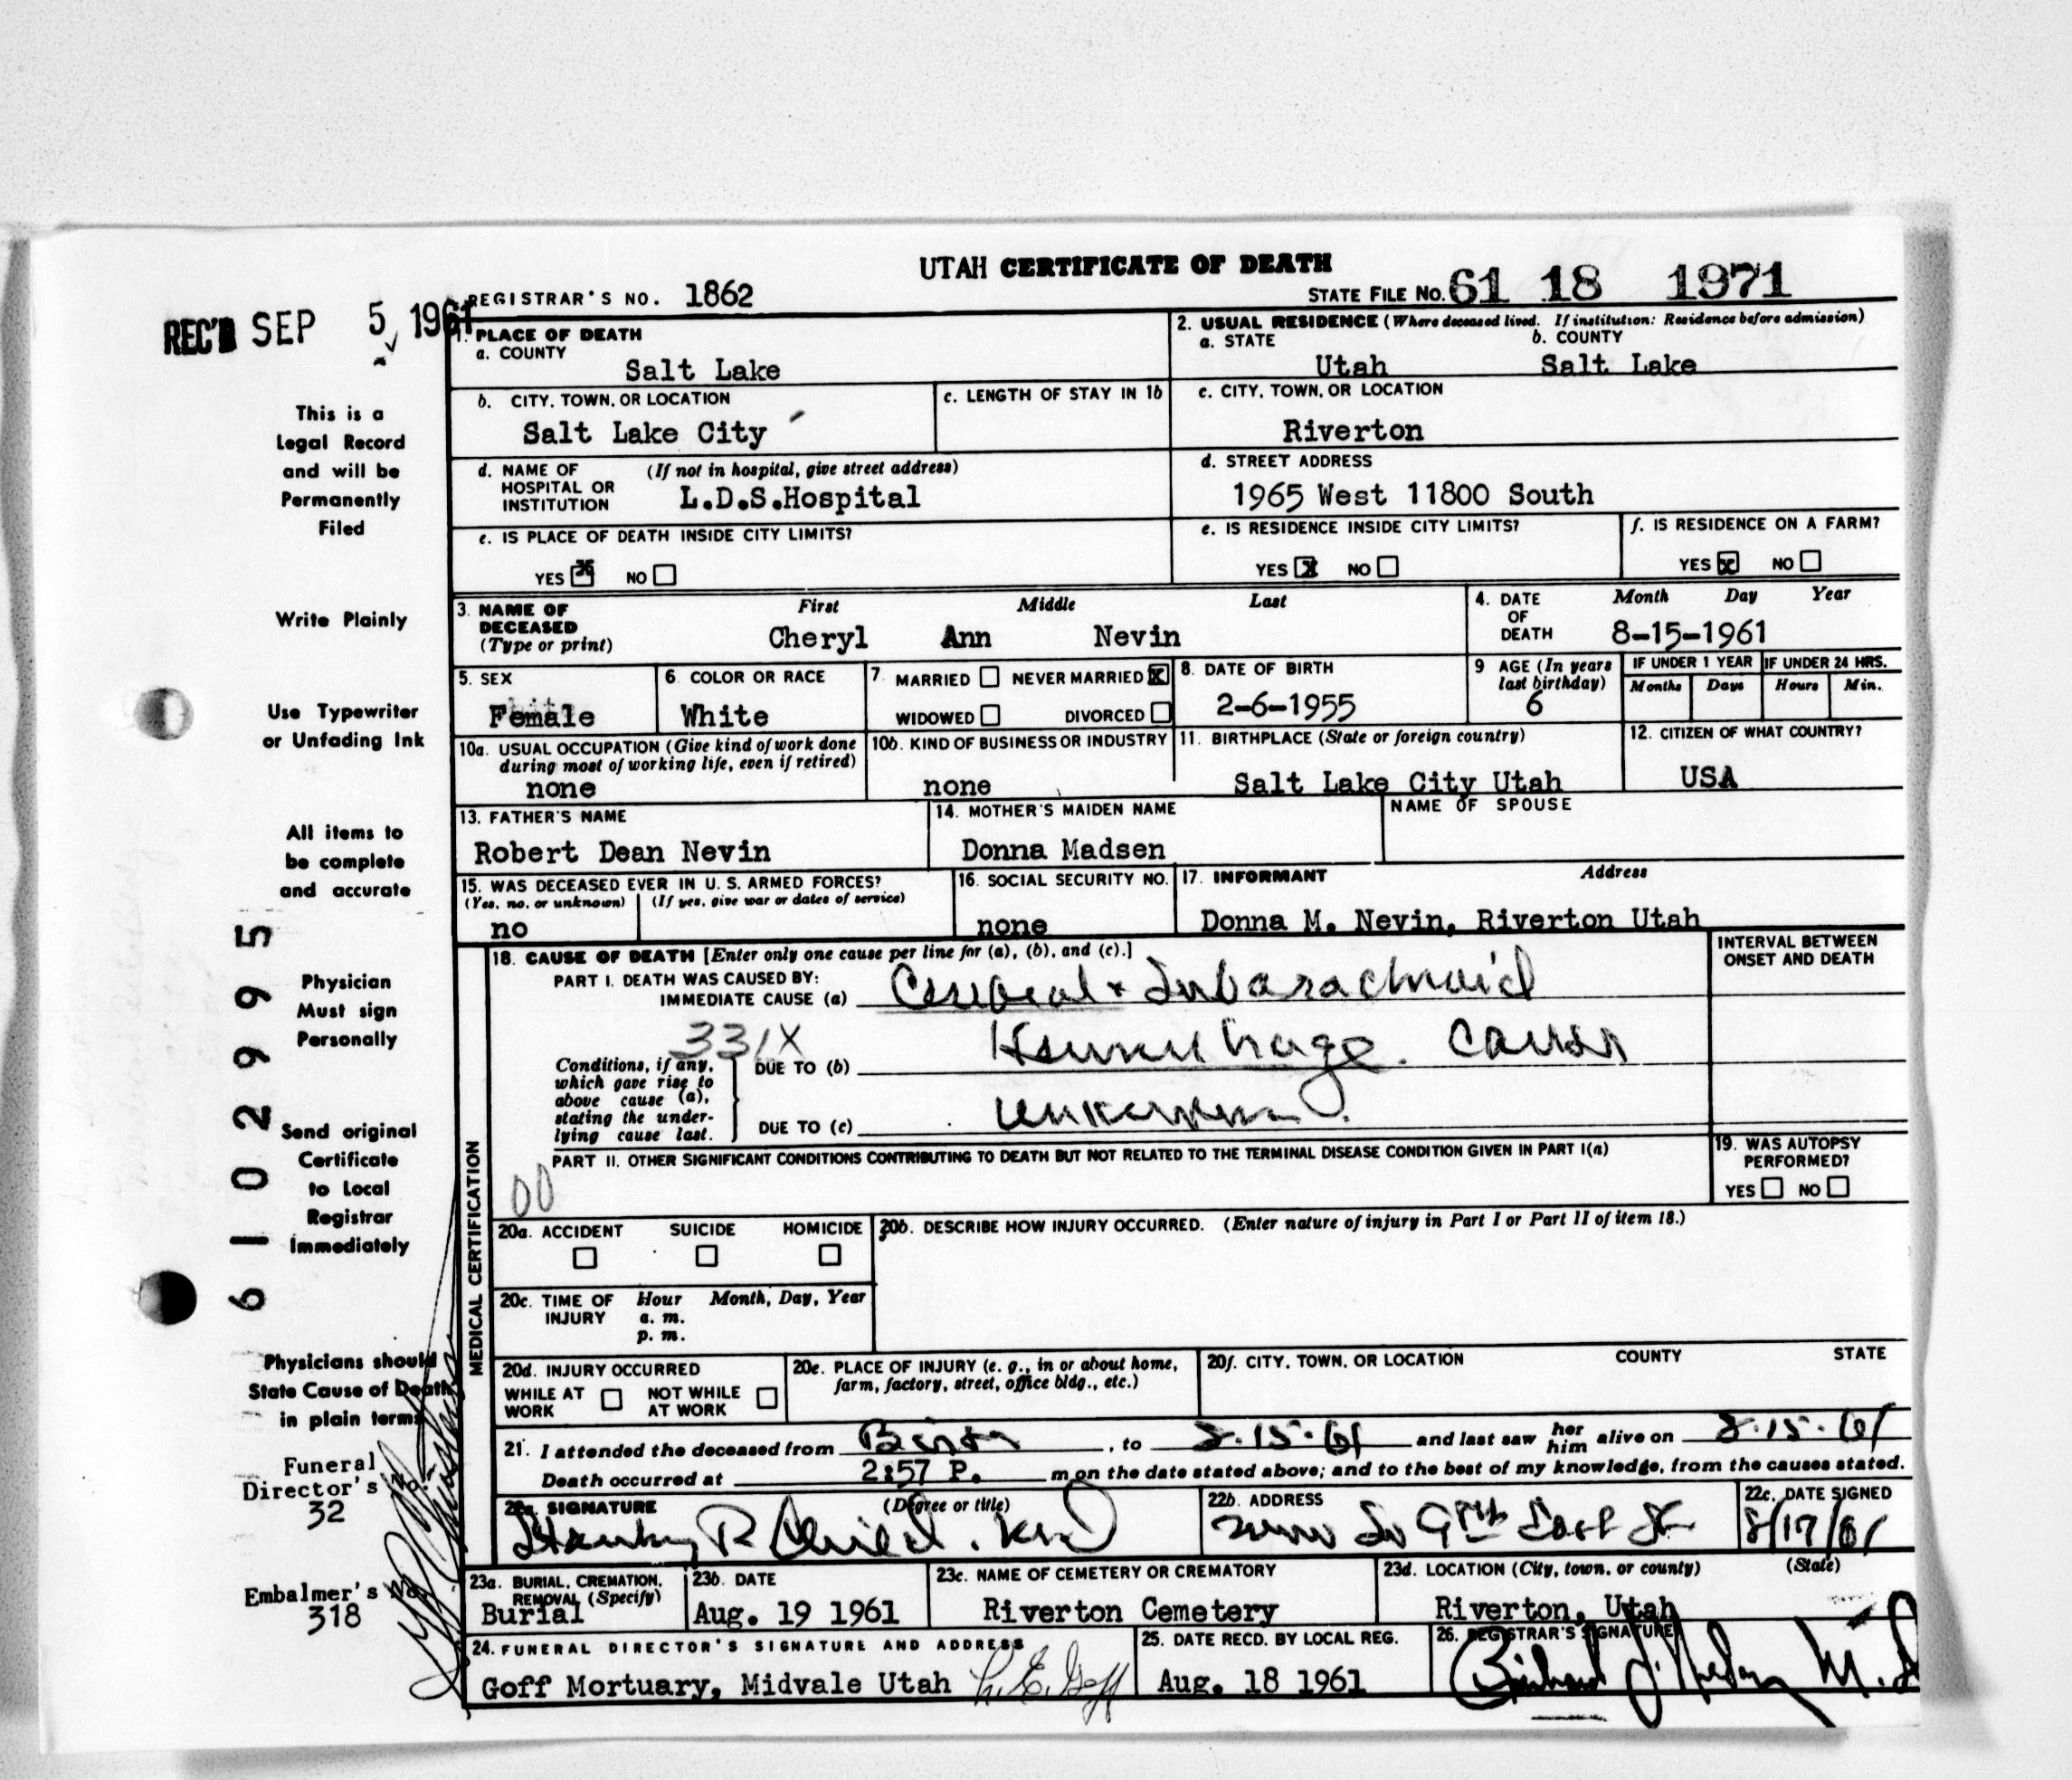 UTAH CERTIFICATE OF DEATH
REGISTRAR'S NO. 1862
STATE FILE NO. 61 18 1971
REC'D SEP 5 1961
1. PLACE OF DEATH
a. COUNTY
Salt Lake
2. USUAL RESIDENCE (Where deceased lived. If institution: Residence before admission)
a. STATE b. COUNTY
Utah Salt Lake
b. CITY, TOWN, OR LOCATION
Salt Lake City
c. LENGTH OF STAY IN 1b
c. CITY, TOWN, OR LOCATION
Riverton
d. NAME OF (If not in hospital, give street address)
HOSPITAL OR
INSTITUTION L.D.S.Hospital
d. STREET ADDRESS
1965 West 11800 South
e. IS PLACE OF DEATH INSIDE CITY LIMITS?
YES X NO
e. IS RESIDENCE INSIDE CITY LIMITS?
YES X NO
f. IS RESIDENCE ON A FARM?
YES X NO
3. NAME OF First Middle Last
DECEASED
(Type or print) Cheryl Ann Nevin
4. DATE Month Day Year
OF
DEATH 8-15-1961
5. SEX
Female
6. COLOR OR RACE
White
7. MARRIED NEVER MARRIED X
WIDOWED DIVORCED
8. DATE OF BIRTH
2-6-1955
9 AGE (In years
last birthday)
6
IF UNDER 1 YEAR IF UNDER 24 HRS.
Months Days Hours Min.
10a. USUAL OCCUPATION (Give kind of work done
during most of working life, even if retired)
none
10b. KIND OF BUSINESS OR INDUSTRY
none
11. BIRTHPLACE (State or foreign country)
Salt Lake City Utah
12. CITIZEN OF WHAT COUNTRY?
USA
13. FATHER'S NAME
Robert Dean Nevin
14. MOTHER'S MAIDEN NAME
Donna Madsen
NAME OF SPOUSE
15. WAS DECEASED EVER IN U. S. ARMED FORCES?
(Yes, no, or unknown) (If yes, give war or dates of service)
no
16. SOCIAL SECURITY NO.
none
17. INFORMANT Address
Donna M. Nevin, Riverton Utah
MEDICAL CERTIFICATION
18. CAUSE OF DEATH [Enter only one cause per line for (a), (b), and (c).]
PART I. DEATH WAS CAUSED BY:
IMMEDIATE CAUSE (a) Cerebral + Subarachnoid
331X
Hemorrhage. Cause
Conditions, if any,
which gave rise to
above cause (a),
stating the under-
lying cause last.
DUE TO (b)
unknown.
DUE TO (c)
INTERVAL BETWEEN
ONSET AND DEATH
PART II. OTHER SIGNIFICANT CONDITIONS CONTRIBUTING TO DEATH BUT NOT RELATED TO THE TERMINAL DISEASE CONDITION GIVEN IN PART I(a)
00
19. WAS AUTOPSY
PERFORMED?
YES NO
20a. ACCIDENT SUICIDE HOMICIDE
20b. DESCRIBE HOW INJURY OCCURRED. (Enter nature of injury in Part I or Part II of item 18.)
20c. TIME OF Hour Month, Day, Year
INJURY a. m.
p. m.
20d. INJURY OCCURRED
WHILE AT NOT WHILE
WORK AT WORK
20e. PLACE OF INJURY (e. g., in or about home,
farm, factory, street, office bldg., etc.)
20f. CITY, TOWN, OR LOCATION COUNTY STATE
21. I attended the deceased from Birth, to 8-15-61 and last saw her him alive on 8-15-61
Death occurred at 2:57 P. m on the date stated above; and to the best of my knowledge, from the causes stated.
22a. SIGNATURE (Degree or title)
Stanley R Child. MD
22b. ADDRESS
So 9th East St
22c. DATE SIGNED
8/17/61
23a. BURIAL, CREMATION,
REMOVAL (Specify)
Burial
23b. DATE
Aug. 19 1961
23c. NAME OF CEMETERY OR CREMATORY
Riverton Cemetery
23d. LOCATION (City, town, or county) (State)
Riverton, Utah
24. FUNERAL DIRECTOR'S SIGNATURE AND ADDRESS
Goff Mortuary, Midvale Utah Goff
25. DATE RECD. BY LOCAL REG.
Aug. 18 1961
26. REGISTRAR'S SIGNATURE
M.D
This is a
Legal Record
and will be
Permanently
Filed
Write Plainly
Use Typewriter
or Unfading Ink
All items to
be complete
and accurate
Physician
Must sign
Personally
Send original
Certificate
to Local
Registrar
Immediately
Physicians should
State Cause of Death
in plain terms
Funeral
Director's No.
32
Embalmer's No.
318
6102995